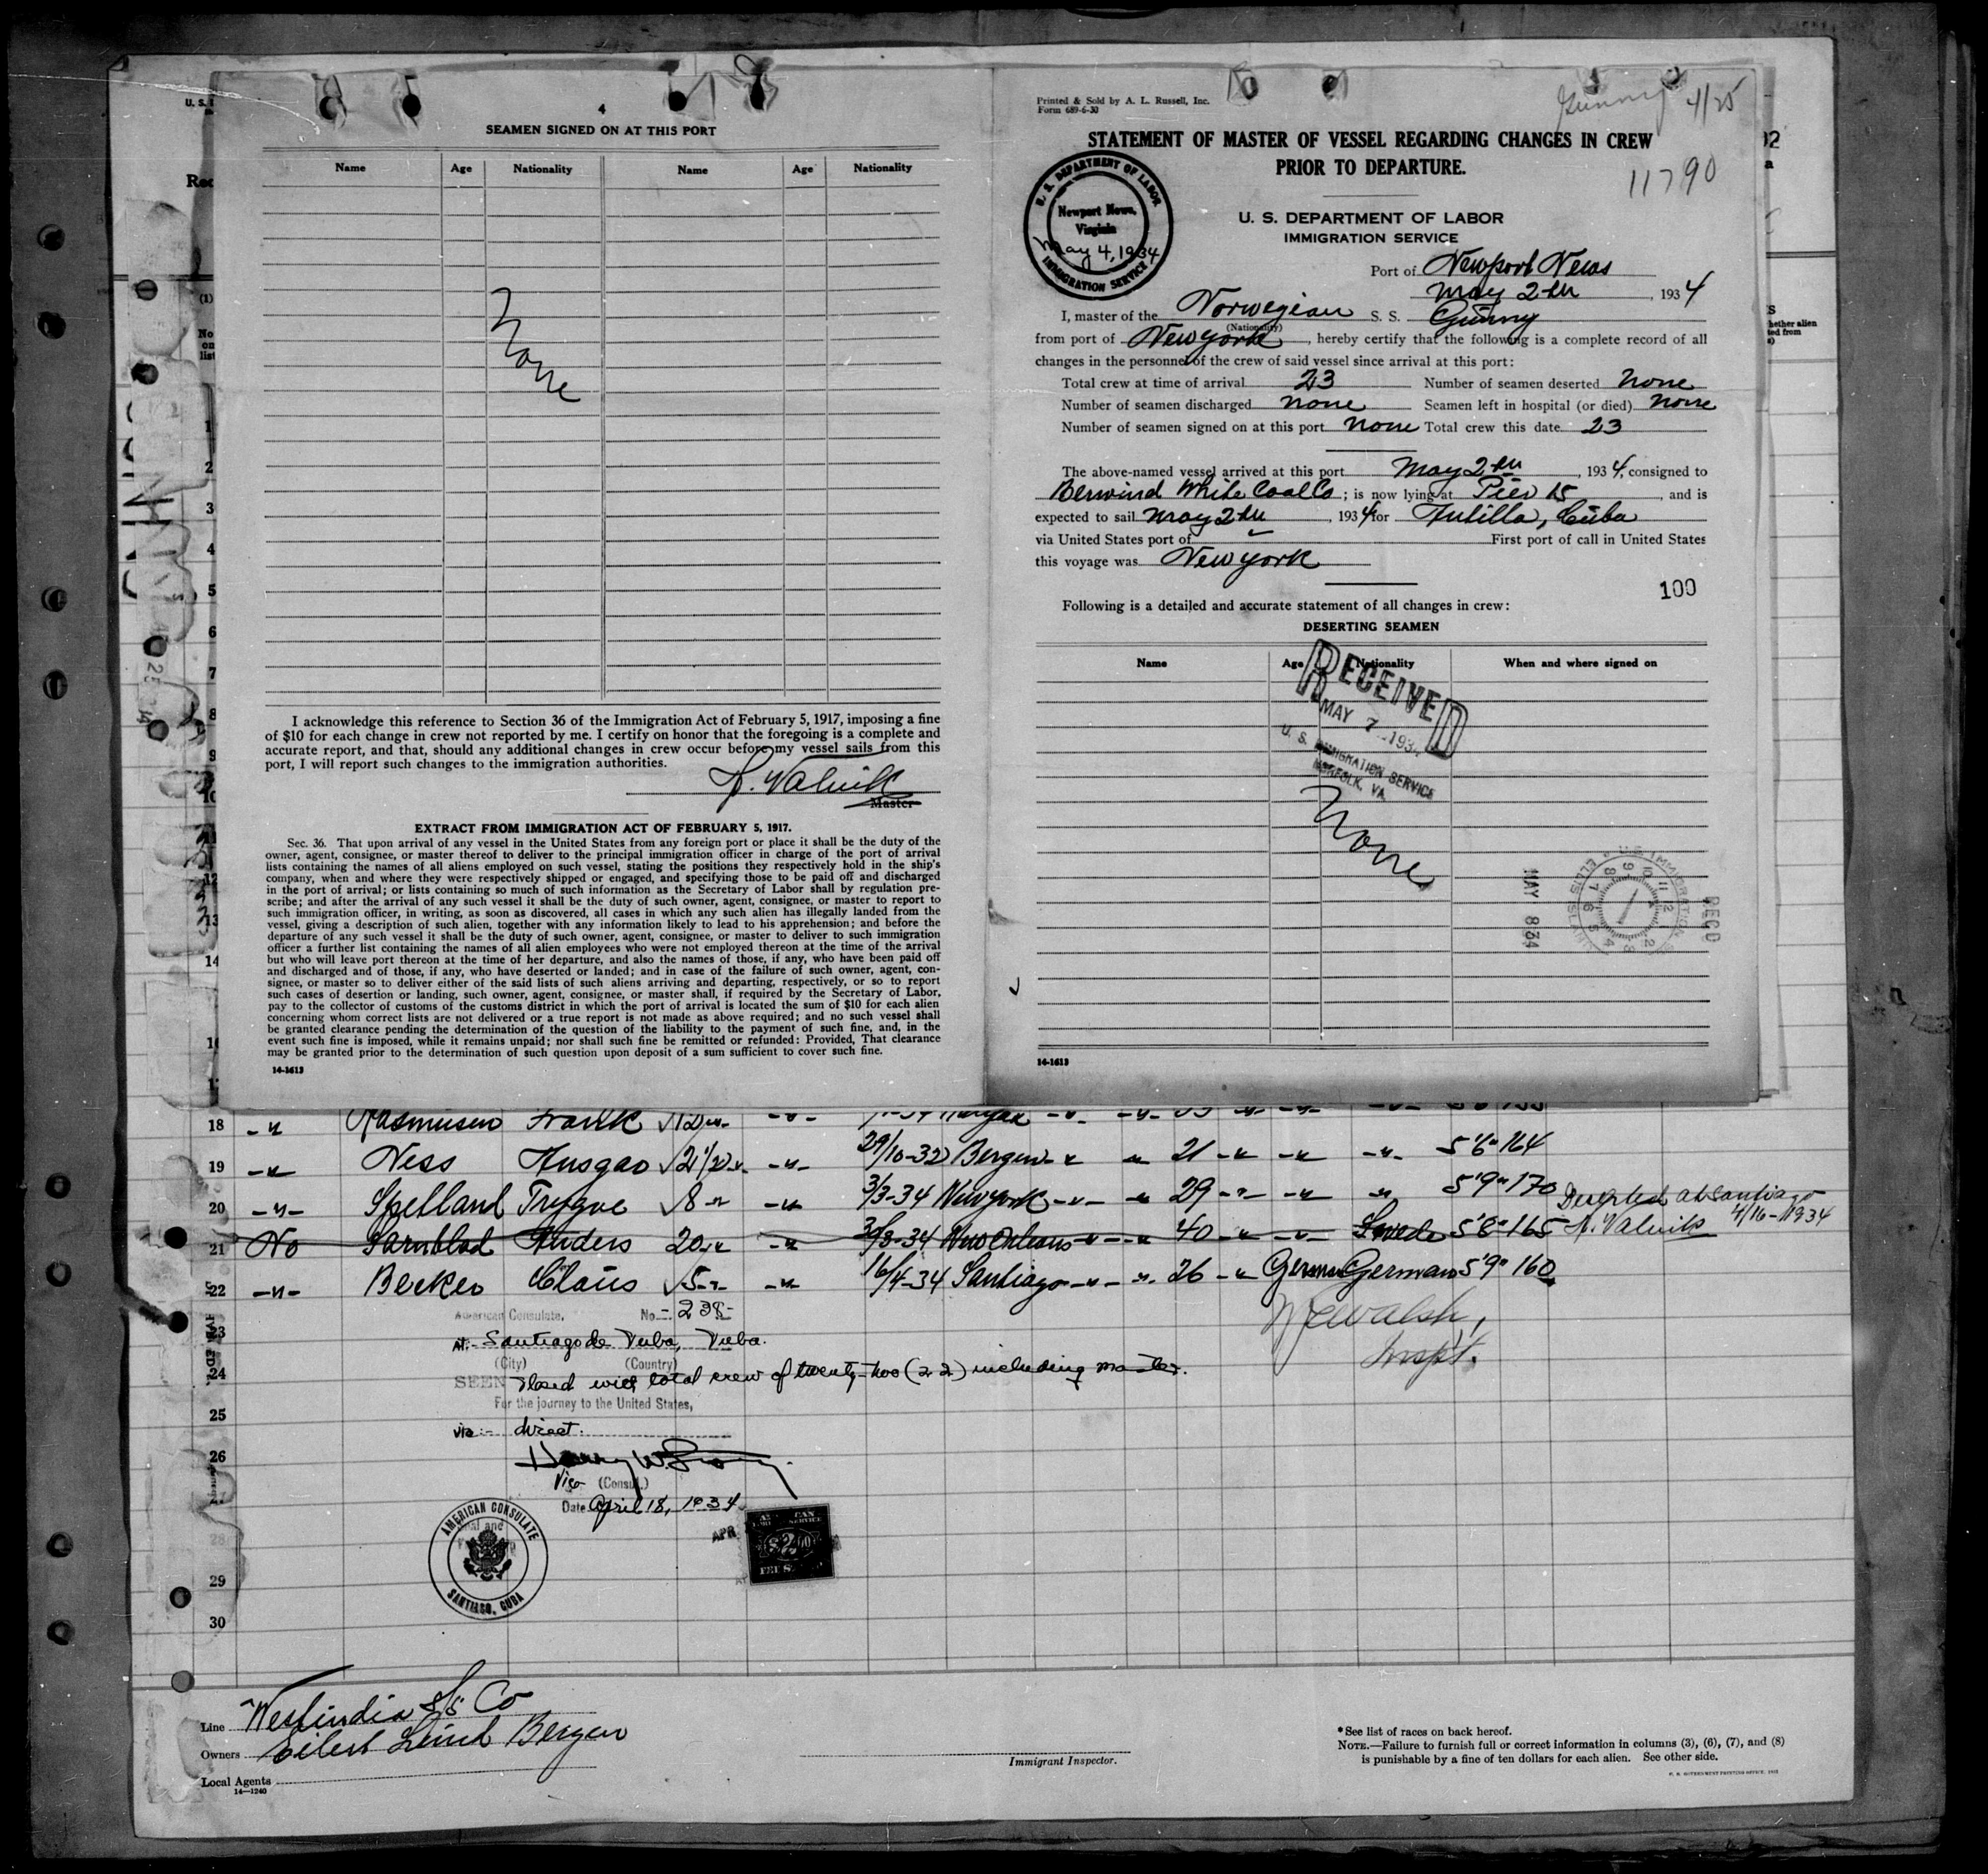 4
SEAMEN SIGNED ON AT THIS PORT
Name Age Nationality Name Age Nationality
None
I acknowledge this reference to Section 36 of the Immigration Act of February 5, 1917, imposing a fine
of $10 for each change in crew not reported by me. I certify on honor that the foregoing is a complete and
accurate report, and that, should any additional changes in crew occur before my vessel sails from this
port, I will report such changes to the immigration authorities.
A. Valvik
Master
EXTRACT FROM IMMIGRATION ACT OF FEBRUARY 5, 1917.
Sec. 36. That upon arrival of any vessel in the United States from any foreign port or place it shall be the duty of the
owner, agent, consignee, or master thereof to deliver to the principal immigration officer in charge of the port of arrival
lists containing the names of all aliens employed on such vessel, stating the positions they respectively hold in the ship's
company, when and where they were respectively shipped or engaged, and specifying those to be paid off and discharged
in the port of arrival; or lists containing so much of such information as the Secretary of Labor shall by regulation pre-
scribe; and after the arrival of any such vessel it shall be the duty of such owner, agent, consignee, or master to report to
such immigration officer, in writing, as soon as discovered, all cases in which any such alien has illegally landed from the
vessel, giving a description of such alien, together with any information likely to lead to his apprehension; and before the
departure of any such vessel it shall be the duty of such owner, agent, consignee, or master to deliver to such immigration
officer a further list containing the names of all alien employees who were not employed thereon at the time of the arrival
but who will leave port thereon at the time of her departure, and also the names of those, if any, who have been paid off
and discharged and of those, if any, who have deserted or landed; and in case of the failure of such owner, agent, con-
signee, or master so to deliver either of the said lists of such aliens arriving and departing, respectively, or so to report
such cases of desertion or landing, such owner, agent, consignee, or master shall, if required by the Secretary of Labor,
pay to the collector of customs of the customs district in which the port of arrival is located the sum of $10 for each alien
concerning whom correct lists are not delivered or a true report is not made as above required; and no such vessel shall
be granted clearance pending the determination of the question of the liability to the payment of such fine, and, in the
event such fine is imposed, while it remains unpaid; nor shall such fine be remitted or refunded: Provided, That clearance
may be granted prior to the determination of such question upon deposit of a sum sufficient to cover such fine.
14-1613
Printed & Sold by A. L. Russell, Inc.
Form 689-6-30
Gunny 4/25
STATEMENT OF MASTER OF VESSEL REGARDING CHANGES IN CREW
PRIOR TO DEPARTURE.
11790
U. S. DEPARTMENT OF LABOR
IMMIGRATION SERVICE
U. S. DEPARTMENT OF LABOR
Newport News,
Virginia
May 4, 1934
IMMIGRATION SERVICE
Port of Newport News
May 2th, 1934
I, master of the Norwegian S. S. Gunny
(Nationality)
from port of New york, hereby certify that the following is a complete record of all
changes in the personnel of the crew of said vessel since arrival at this port:
Total crew at time of arrival 23 Number of seamen deserted None
Number of seamen discharged none Seamen left in hospital (or died) None
Number of seamen signed on at this port None Total crew this date 23
The above-named vessel arrived at this port May 2th, 1934, consigned to
Berwind White Coal Co; is now lying at Pier 15, and is
expected to sail May 2th, 1934 for Antilla, Cuba
via United States port of First port of call in United States
this voyage was New york
100
Following is a detailed and accurate statement of all changes in crew:
DESERTING SEAMEN
Name Age Nationality When and where signed on
RECEIVED
MAY 7 1934
U. S. IMMIGRATION SERVICE
NORFOLK, VA.
None
RECD
MAY 8 34
14-1613
18 -"- Rasmusen Frank
19 -"- Ness Ansgar 2 1/2 -"- 29/10-32 Bergen -"- 21 -"- -"- -"- 5'6" 164
20 -"- Spelland Trygve 8 -"- -"- 3/3-34 New york -"- -"- 29 -"- -"- -"- 5'9" 170
Deserted at Santiago
4/16-1934
21 No Sarnblad Anders 20 -"- -"- 34 New Orleans -"- -"- 40 -"- -"- Swede 5'8" 165 A. Valvik
22 -"- Becker Claus 5 -"- -"- 16/4-34 Santiago -"- -"- 26 -"- German German 5'9" 160
American Consulate, No 238
At Santiago de Cuba, Cuba.
(City) (Country)
SEEN Closed with total crew of twenty-two (22) including master.
For the journey to the United States,
via:- direct.
Vice (Consul)
Date April 18, 1934
Walsh,
Inspt.
23
24
25
26
28
29
30
AMERICAN CONSULATE
SANTIAGO, CUBA
APR
Line Westindia S/S Co
Owners Eilert Lund Bergen
Local Agents
14-1240
Immigrant Inspector.
*See list of races on back hereof.
NOTE.—Failure to furnish full or correct information in columns (3), (6), (7), and (8)
is punishable by a fine of ten dollars for each alien. See other side.